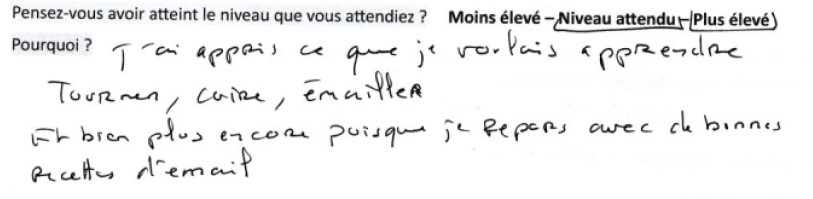 Pensez-vous avoir atteint le niveau que vous attendiez ? Moins élevé – Niveau attendu – Plus élevé
Pourquoi ? J'ai appris ce que je voulais apprendre
Tourner, cuire, émailler
Et bien plus encore puisque je repars avec de bonnes
recettes d'email